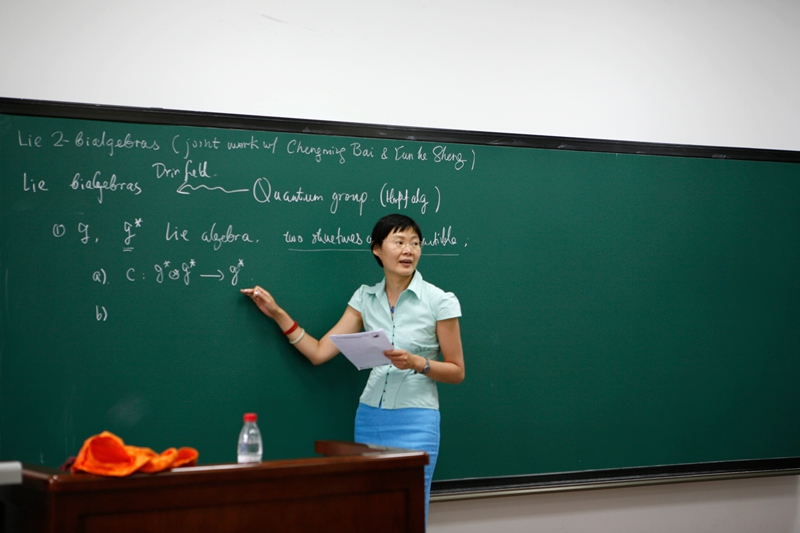 Lie 2-bialgebras (joint work w/ Chengming Bai & Yunhe Sheng)
Lie bialgebras Drinfeld Quantum group. (Hopf alg)
① g, g* Lie algebra. two structures
a) C : g* ⊗ g* → g*
b)